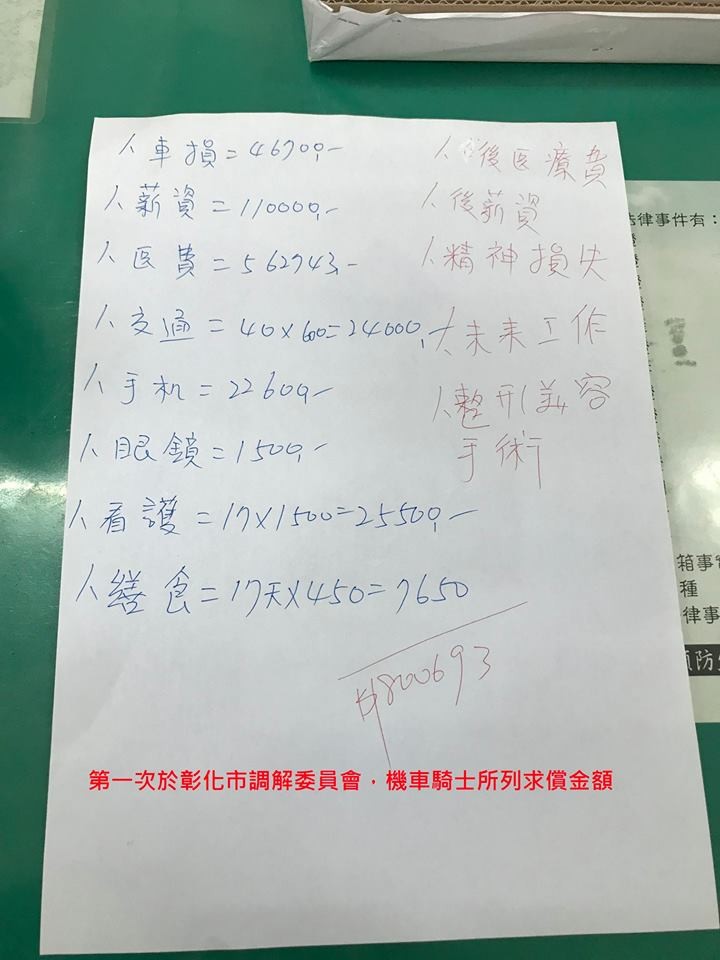 車損=46700,-
薪資=110000,-
医費=562743-
交通=40×600=24000,-
手机=22600,-
眼鏡=1500,-
看護=17×1500=25500,-
繕食=17天×450=7650
#800693
後医療費
後薪資
精神損失
未来工作
整形美容
手術
律事件有：
箱事
種
律事
第一次於彰化市調解委員會，機車騎士所列求償金額